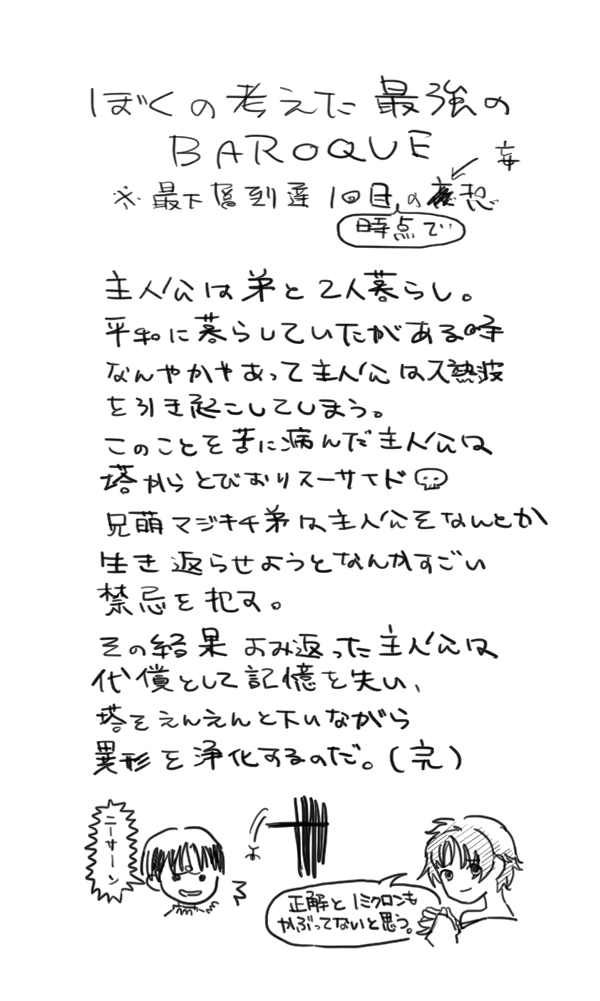 ぼくの考えた最強の
BAROQUE
※最下層到達1回目の妄想
時点で
主人公は弟と2人暮らし。
平和に暮らしていたがある時
なんやかやあって主人公は大熱波
を引き起こしてしまう。
このことを苦に病んだ主人公は
塔からとびおりスーサイド
兄萌マジキチ弟は主人公をなんとか
生き返らせようとなんかすごい
禁忌を犯す。
その結果よみ返った主人公は
代償として記憶を失い、
塔をえんえんと下いながら
異形を浄化するのだ。(完)
ニーサーン
正解と1ミクロンも
かぶってないと思う。